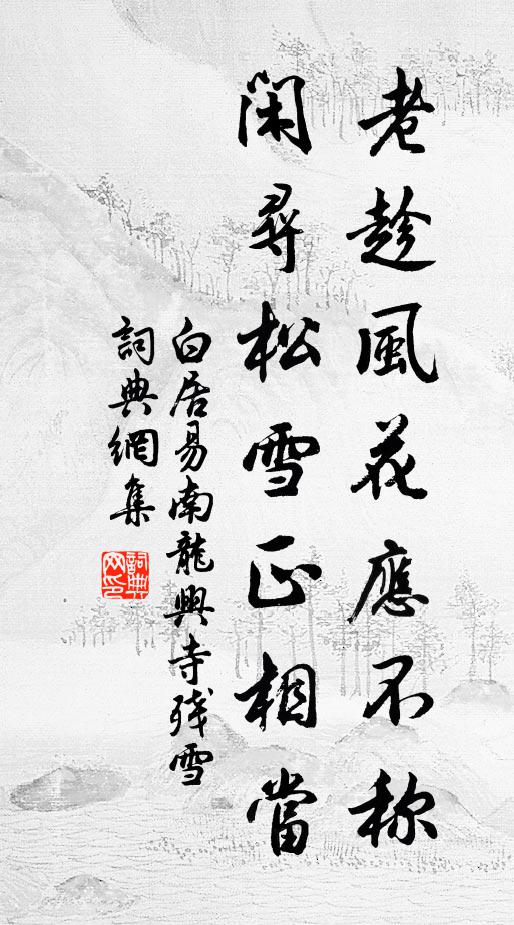 老趁風花應不称
閑尋松雪正相當
白居易南龍興寺残雪
詞典網集
詞典网印